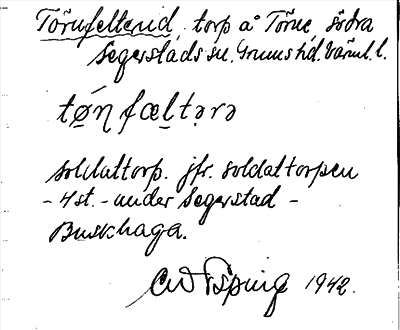 Törnfelterud, torp å Törne, södra
Segerstads sn. Grums hd. Värml. l.
tø̱ņ fæḻtərə
soldattorp. jfr. soldattorpen
- 4 st. - under Segerstad -
Buskhaga.
1942.